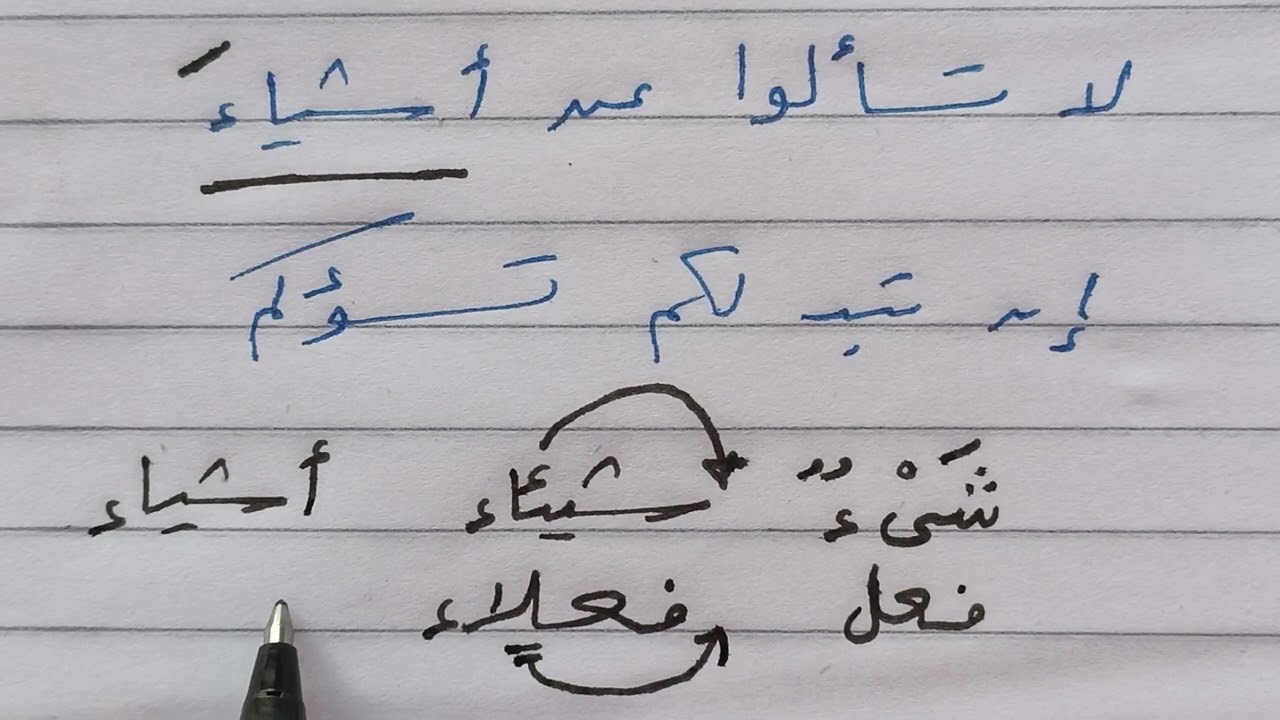 لا تسألوا عن أشياءَ
إن تبد لكم تسؤكم
شَىْءٌ شيئاء أشياء
فعل فعلاء